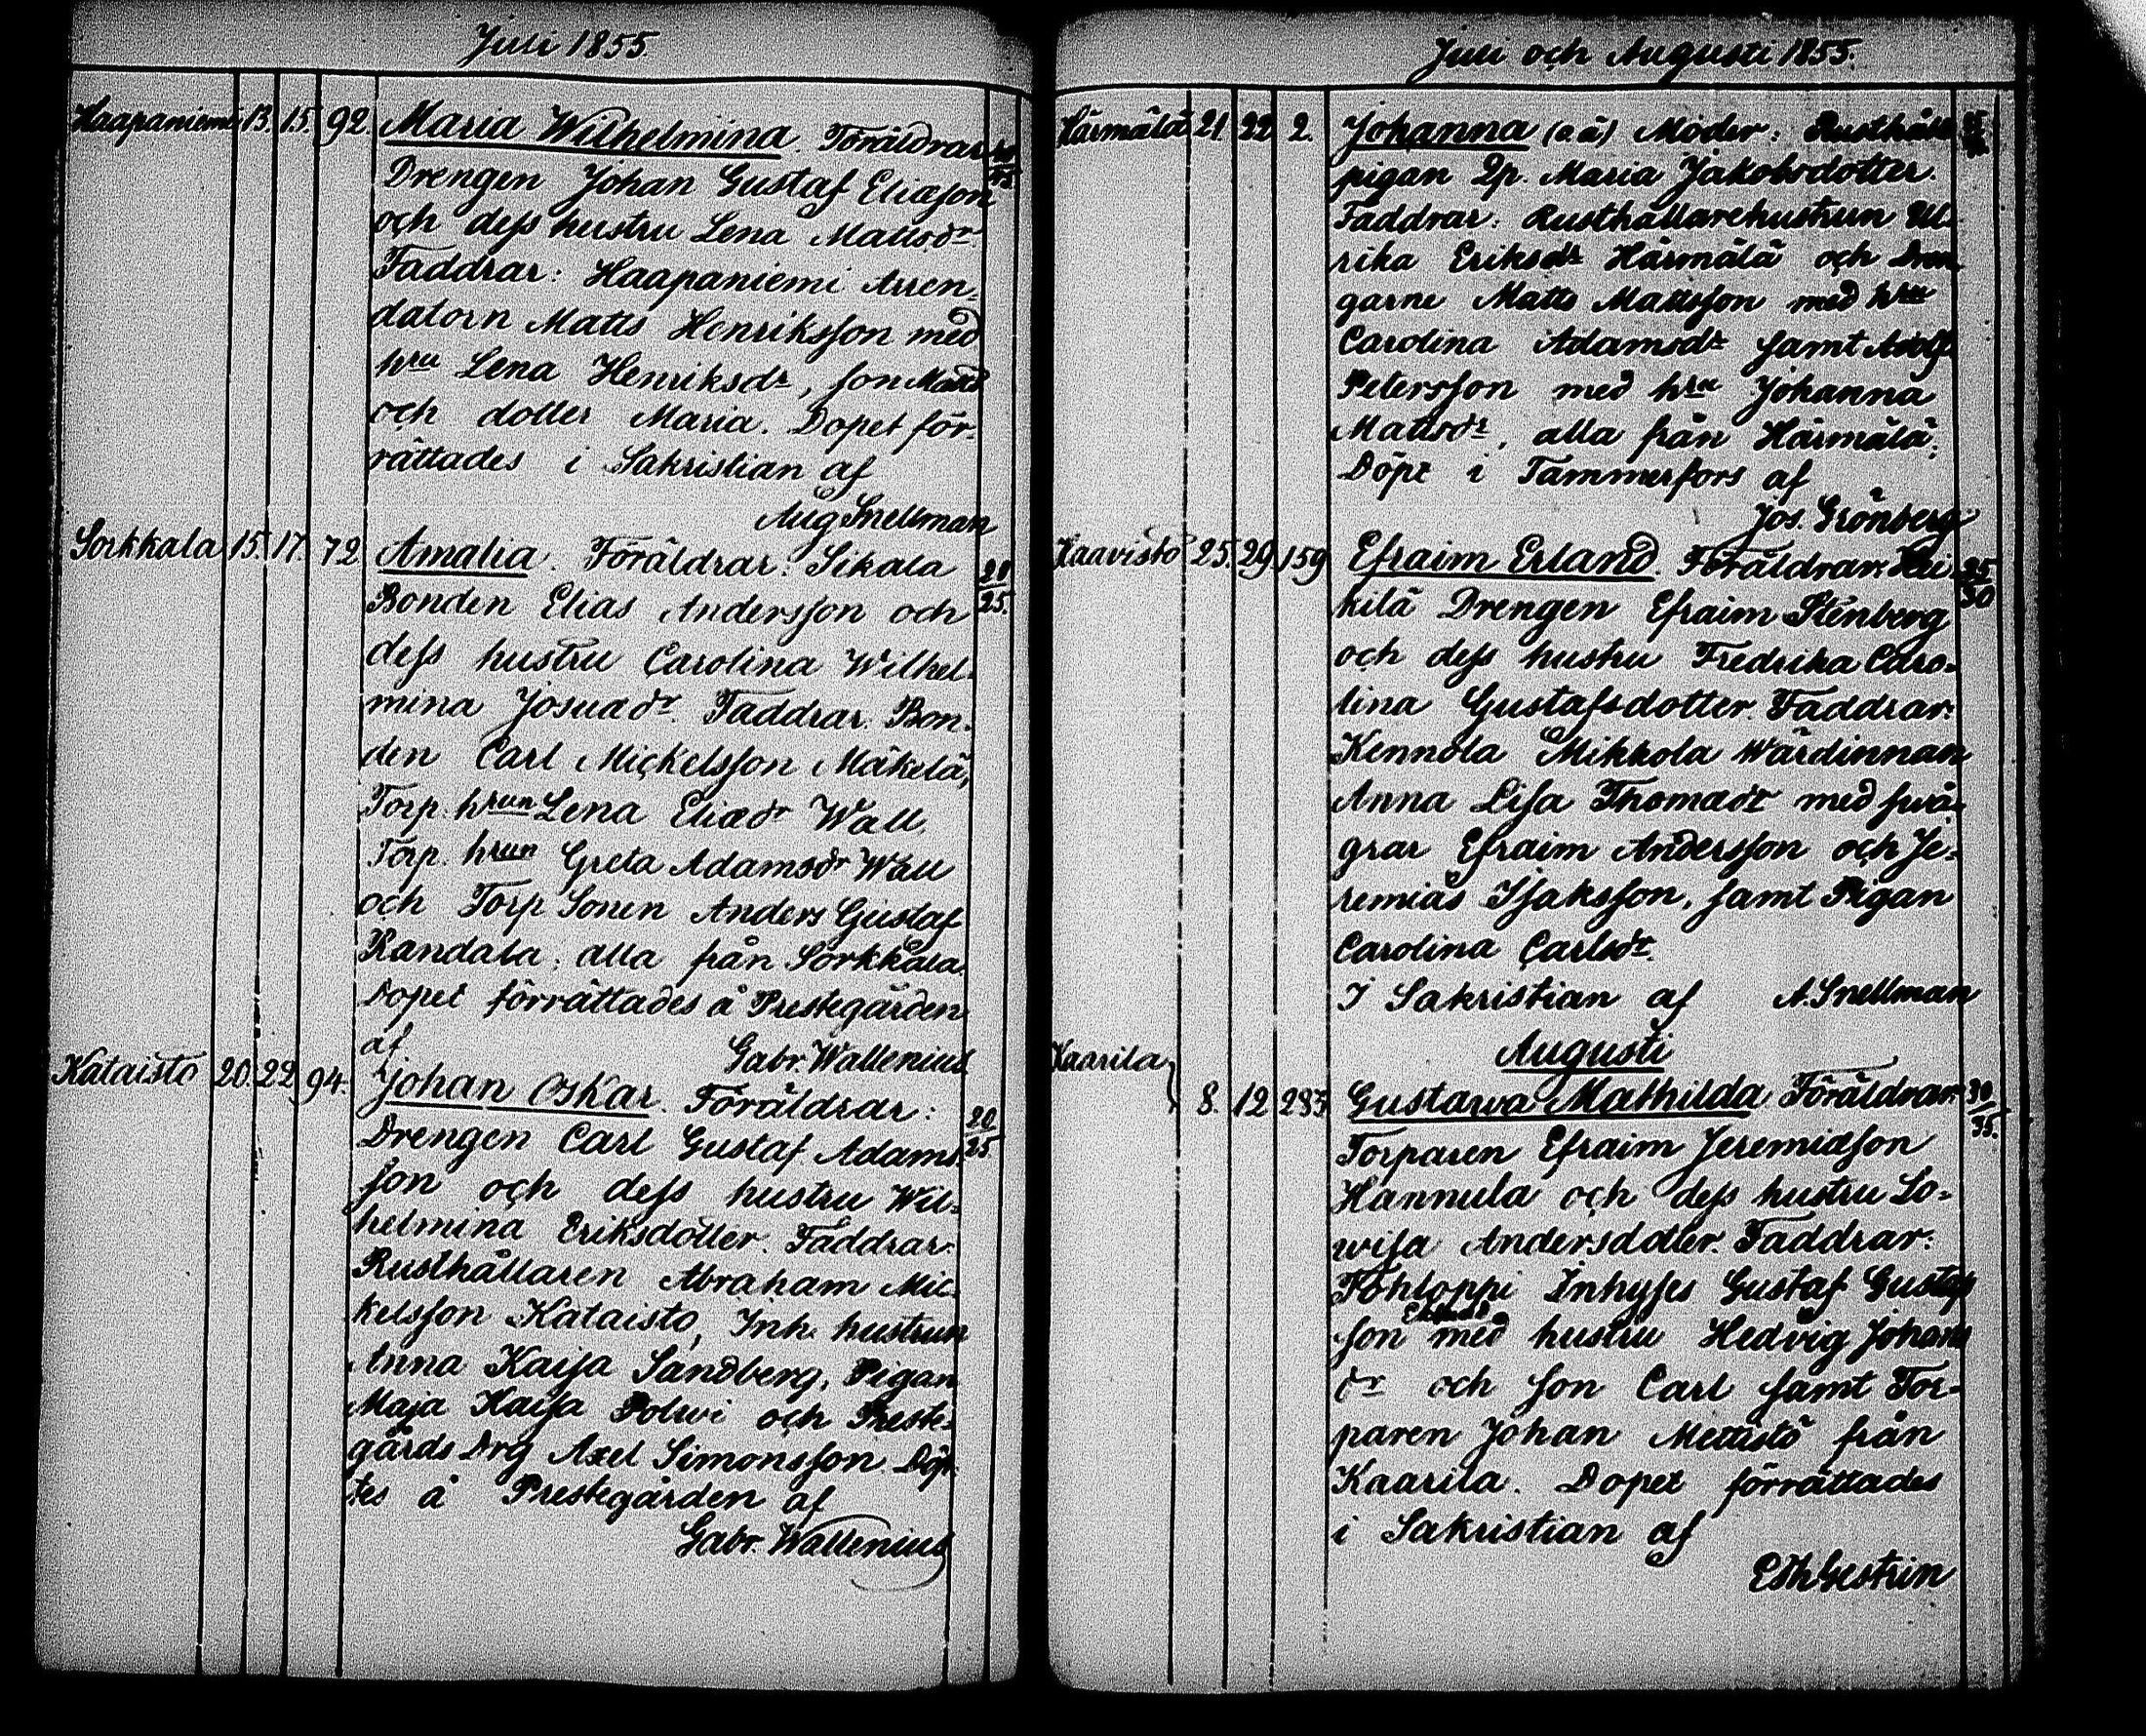 Juli 1855
Haapaniemi 13. 15. 92 Maria Wilhelmina. Föräldrar
Drengen Johan Gustaf Eliæson
och dess hustru Lena Mattsdr
Faddrar: Haapaniemi Arren-
datorn Matts Henriksson med
hru Lena Henriksdr, son Matts
och dotter Maria. Dopet för-
rättades i Sakristian af
Aug Snellman
Sorkkala 15. 17. 72 Amalia. Föräldrar: Sikala 20/25.
Bonden Elias Andersson och
dess hustru Carolina Wilhel-
mina Josuædr. Faddrar. Bon-
den Carl Mickelsson Mäkelä,
Torp. hrun Lena Eliædr Wall,
Torp. hrun Greta Adamsdr Wall
och Torp Sonen Anders Gustaf
Randala, alla från Sorkkala.
Dopet förrättades å Prestegården
af Gabr. Wallenius
Kataisto 20. 22 94. Johan Oskar. Föräldrar: 20/25
Drengen Carl Gustaf Adams-
son och dess hustru Wil-
helmina Eriksdotter. Faddrar.
Rusthållaren Abraham Mic-
kelsson Kataisto, Inh. hustrun
Anna Kaisa Sandberg, Pigan
Maja Kaisa Polwi och Preste-
gårds Drg Axel Simonsson. Döp-
tes å Prestegården af
Gabr. Wallenius
Juli och Augusti 1855.
Härmälä 21. 22 2. Johanna (o.ä) Moder: Rusthålls
pigan Lp. Maria Jakobsdotter.
Faddrar: Rusthållarehustrun Ul-
rika Eriksdr Härmälä och Dren-
garne Matts Mattsson med hru
Carolina Adamsdr samt Adolf
Petersson med hru Johanna
Mattsdr, alla från Härmälä.
Döpt i Tammerfors af
Jos. Grönberg
Haavisto 25. 29 159 Efraim Erland. Föräldrar: Hei- 25/30
kilä Drengen Efraim Stenberg
och dess hustru Fredrika Caro-
lina Gustafsdotter. Faddrar:
Kennola Mikkola Wärdinnan
Anna Lisa Thomædr med swå-
grar Efraim Andersson och Je-
remias Isaksson, samt Pigan
Carolina Carlsdr.
I Sakristian af A. Snellman
Augusti
Kaarila 8. 12 283 Gustawa Mathilda Föräldrar: 30/35.
Torparen Efraim Jeremiæson
Hannula och dess hustru Lo-
wisa Andersdotter. Faddrar:
Tohloppi Inhyses Gustaf Gustaf
son med hustru Hedvig Johans
dr och son Carl samt Tor-
paren Johan Mettistö från
Kaarila. Dopet förrättades
i Sakristian af